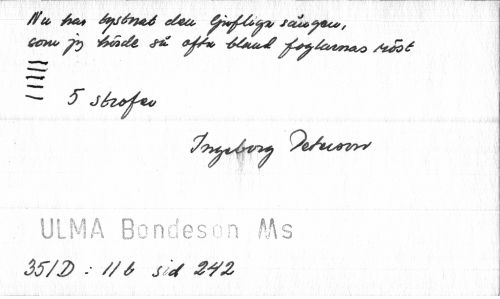 Nu har tystnat den ljufliga sången,
som jg hörde så ofta bland foglarnas röst
5 strofer
Ingeborg Peterson
ULMA Bondeson Ms
351D : 11 b sid 242